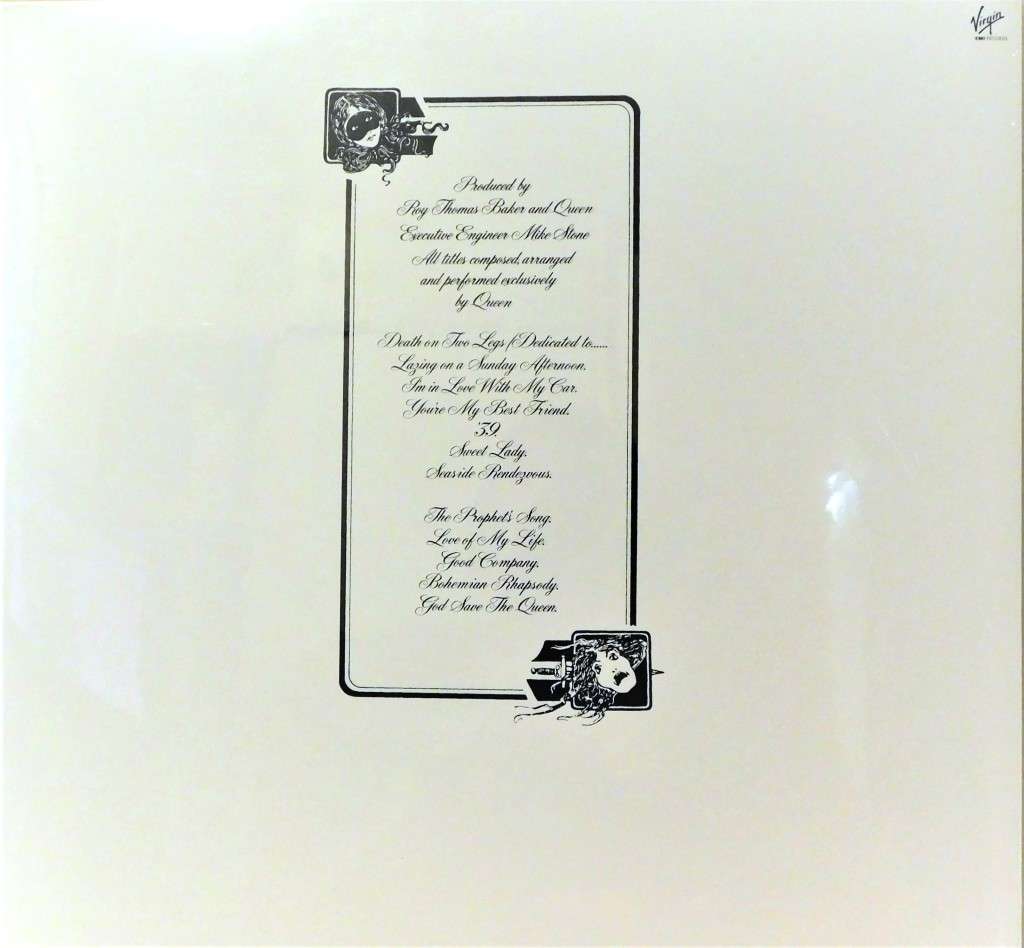 Virgin
EMI RECORDS
Produced by
Roy Thomas Baker and Queen
Executive Engineer Mike Stone
All titles composed, arranged
and performed exclusively
by Queen
Death on Two Legs (Dedicated to......
Lazing on a Sunday Afternoon.
I'm in Love With My Car.
You're My Best Friend.
'39.
Sweet Lady.
Seaside Rendezvous.
The Prophet's Song.
Love of My Life.
Good Company.
Bohemian Rhapsody.
God Save The Queen.